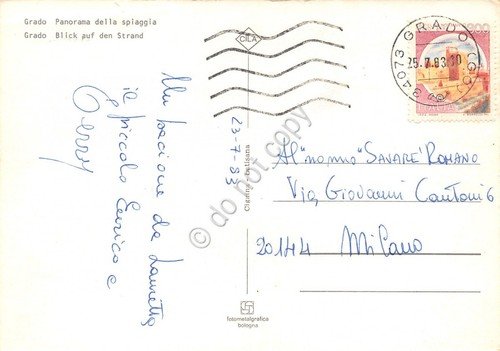 Grado Panorama della spiaggia
Grado Blick auf den Strand
Un bacione da Lauretta
il piccolo Enrico e
23-7-83
CILA
34073 GRADO (GO)
25.7.83.10
Al "nonno" SAVARE' ROMANO
Via Giovanni Cantoni 6
20144 Milano
fotometalgrafica
bologna
do not copy